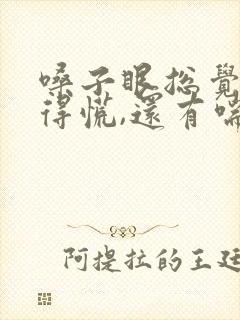 嗓子眼总覺
得慌,還有喘
阿提拉的王廷